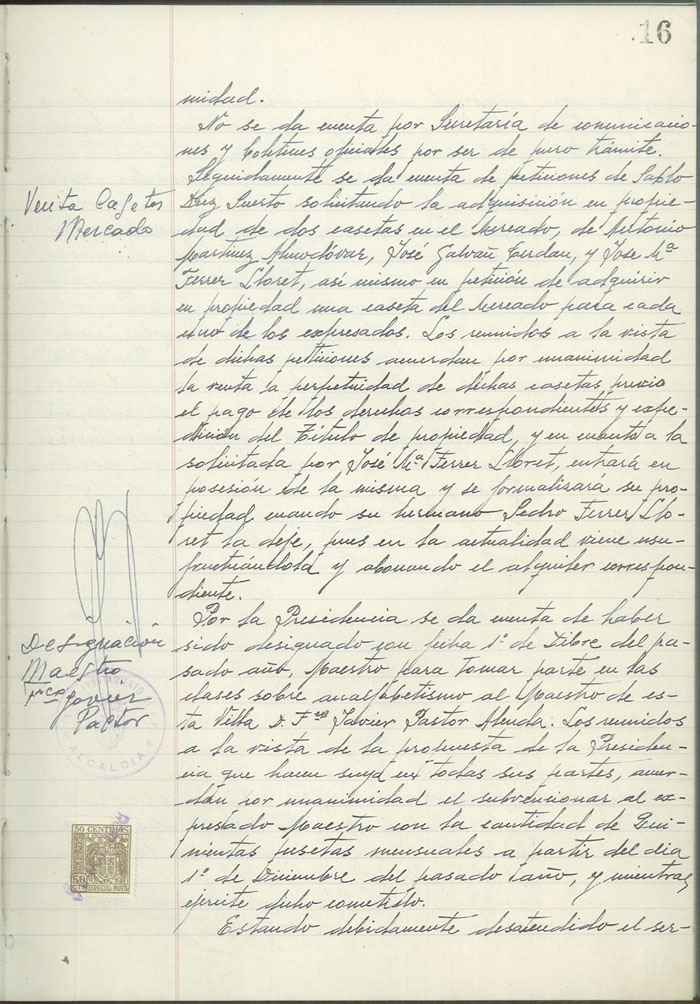 16
nidad.
No se da cuenta por Secretaría de comunicacio-
nes y boletines oficiales por ser de puro trámite.
Seguidamente se da cuenta de peticiones de Pablo
Puerto solicitando la adquisición en propie-
dad de dos casetas en el Mercado, de Antonio
Martinez Almodóvar, José Galvañ Cerdan, y Jose Mª
Ferrer Lloret, así mismo en petición de adquirir
en propiedad una caseta del Mercado para cada
uno de los expresados. Los reunidos a la vista
de dichas peticiones acuerdan por unanimidad
la venta a perpetuidad de dichas casetas previo
el pago de los derechos correspondientes y expe-
dición del Título de propiedad, y en cuanto a la
solicitada por José Mª Ferrer Lloret, entrará en
posesión de la misma y se formalizará su pro-
piedad cuando su hermano Pedro Ferrer Llo-
ret la deje, pues en la actualidad viene usu-
fructuándola y abonando el alquiler correspon-
diente.
Por la Presidencia se da cuenta de haber
sido designado con fecha 1º de Dibre del pa-
sado año, Maestro para tomar parte en las
clases sobre analfabetismo al Maestro de es-
ta Villa D. Fco Javier Pastor Alenda. Los reunidos
a la vista de la propuesta de la Presiden-
cia que hacen suya en todas sus partes, acuer-
dan por unanimidad el subvencionar al ex-
presado Maestro con la cantidad de Qui-
nientas pesetas mensuales a partir del dia
1º de Diciembre del pasado año, y mientras
ejercite dicho cometido.
Estando debidamente desatendido el ser-
Venta Casetas
Mercado
Designación
Maestro
Fco Javier
Pastor
ALCALDIA
50 CENTIMOS
ESPECIAL MOVIL